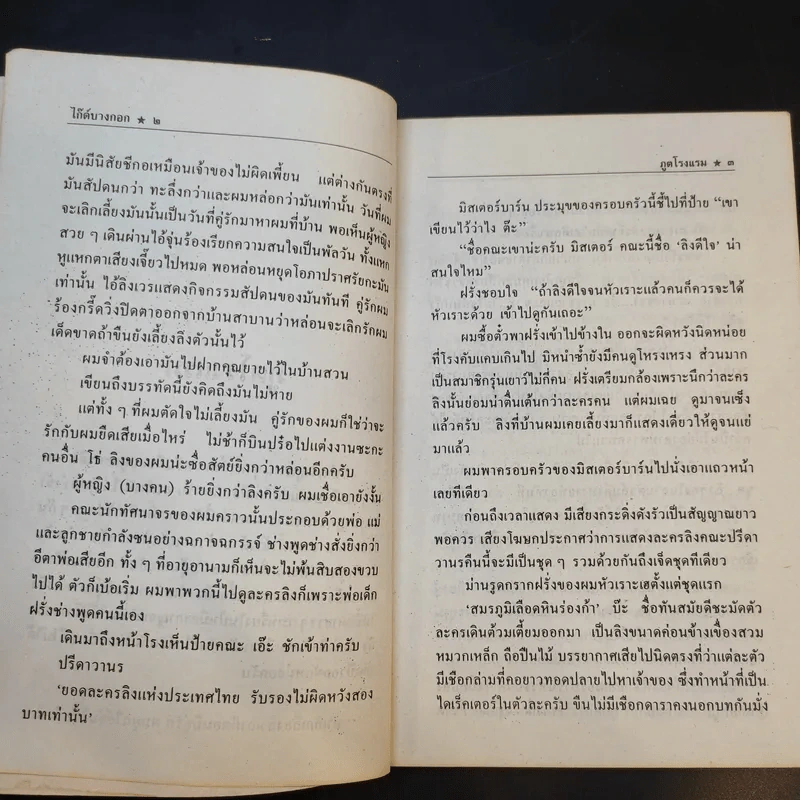 ไก๊ด์บางกอก ★ ๒
มันมีนิสัยชีกอเหมือนเจ้าของไม่ผิดเพี้ยน แต่ต่างกันตรงที่
มันสัปดนกว่า ทะลึ่งกว่าและผมหล่อกว่ามันเท่านั้น วันที่ผม
จะเลิกเลี้ยงมันนั้นเป็นวันที่คู่รักมาหาผมที่บ้าน พอเห็นผู้หญิง
สวย ๆ เดินผ่านไอ้จุ่นร้องเรียกความสนใจเป็นพัลวัน ทั้งแหก
หูแหกตาเสียงเจี๊ยวไปหมด พอหล่อนหยุดโอภาปราศรัยกะมัน
เท่านั้น ไอ้ลิงเวรแสดงกิจกรรมสัปดนของมันทันที คู่รักผม
ร้องกรี๊ดวิ่งปิดตาออกจากบ้านสาบานว่าหล่อนจะเลิกรักผม
เด็ดขาดถ้าขืนยังเลี้ยงลิงตัวนั้นไว้
ผมจำต้องเอามันไปฝากคุณยายไว้ในบ้านสวน
เขียนถึงบรรทัดนี้ยังคิดถึงมันไม่หาย
แต่ทั้ง ๆ ที่ผมตัดใจไม่เลี้ยงมัน คู่รักของผมก็ใช่ว่าจะ
รักกับผมยืดเสียเมื่อไหร่ ไม่ช้าก็บินปร๋อไปแต่งงานซะกะ
คนอื่น โธ่ ลิงของผมน่ะซื่อสัตย์ยิ่งกว่าหล่อนอีกครับ
ผู้หญิง (บางคน) ร้ายยิ่งกว่าลิงครับ ผมเชื่อเอายังงั้น
คณะนักทัศนาจรของผมคราวนั้นประกอบด้วยพ่อ แม่
และลูกชายกำลังซนอย่างฉกาจฉกรรจ์ ช่างพูดช่างสั่งยิ่งกว่า
อีตาพ่อเสียอีก ทั้ง ๆ ที่อายุอานามก็เห็นจะไม่พ้นสิบสองขวบ
ไปได้ ตัวก็เบ้อเริ่ม ผมพาพวกนี้ไปดูละครลิงก็เพราะพ่อเด็ก
ฝรั่งช่างพูดคนนี้เอง
เดินมาถึงหน้าโรงเห็นป้ายคณะ เอ๊ะ ชักเข้าท่าครับ
ปรีดาวานร
'ยอดละครลิงแห่งประเทศไทย รับรองไม่ผิดหวังสอง
บาทเท่านั้น'
ภูตโรงแรม ★ ๓
มิสเตอร์บาร์น ประมุขของครอบครัวนี้ชี้ไปที่ป้าย "เขา
เขียนไว้ว่าไง ต๊ะ"
"ชื่อคณะเขาน่ะครับ มิสเตอร์ คณะนี้ชื่อ 'ลิงดีใจ' น่า
สนใจไหม"
ฝรั่งชอบใจ "ถ้าลิงดีใจจนหัวเราะแล้วคนก็ควรจะได้
หัวเราะด้วย เข้าไปดูกันเถอะ"
ผมซื้อตั๋วพาฝรั่งเข้าไปข้างใน ออกจะผิดหวังนิดหน่อย
ที่โรงคับแคบเกินไป มิหนำซ้ำยังมีคนดูโหรงเหรง ส่วนมาก
เป็นสมาชิกรุ่นเยาว์ไม่กี่คน ฝรั่งเตรียมกล้องเพราะนึกว่าละคร
ลิงนั้นย่อมน่าตื่นเต้นกว่าละครคน แต่ผมเฉย ดูมาจนเซ็ง
แล้วครับ ลิงที่บ้านผมเคยเลี้ยงมาก็แสดงเดี่ยวให้ดูจนแย่
มาแล้ว
ผมพาครอบครัวของมิสเตอร์บาร์นไปนั่งเอาแถวหน้า
เลยทีเดียว
ก่อนถึงเวลาแสดง มีเสียงกระดิ่งดังรัวเป็นสัญญาณยาว
พอควร เสียงโฆษกประกาศว่าการแสดงละครลิงคณะปรีดา
วานรคืนนี้จะมีเป็นชุด ๆ รวมด้วยกันถึงเจ็ดชุดทีเดียว
ม่านรูดกรากฝรั่งของผมหัวเราะเฮตั้งแต่ชุดแรก
'สมรภูมิเลือดหินร่องก้า' บ๊ะ ชื่อทันสมัยดีชะมัดตัว
ละครเดินต้วมเตี้ยมออกมา เป็นลิงขนาดค่อนข้างเขื่องสวม
หมวกเหล็ก ถือปืนไม้ บรรยากาศเสียไปนิดตรงที่ว่าแต่ละตัว
มีเชือกล่ามที่คอยาวทอดปลายไปหาเจ้าของ ซึ่งทำหน้าที่เป็น
ไดเร็คเตอร์ในตัวละครับ ขืนไม่มีเชือกดาราคงนอกบทกันมั่ง